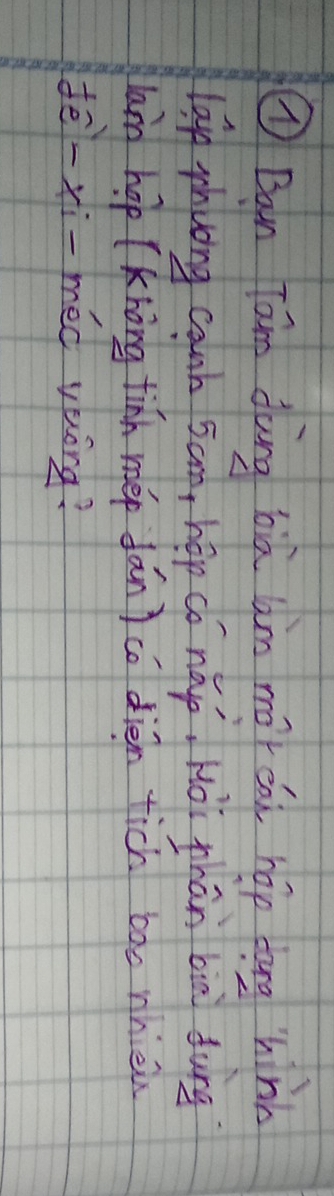 ① Bạn Tâm dùng bìa làm một cái hộp dạng hình
lập phương cạnh 5cm, hộp có nắp, Hỏi phần bìa dùng
làm hộp (không tính mép dán) có diện tích bao nhiêu
đề - xi - méc vuông?